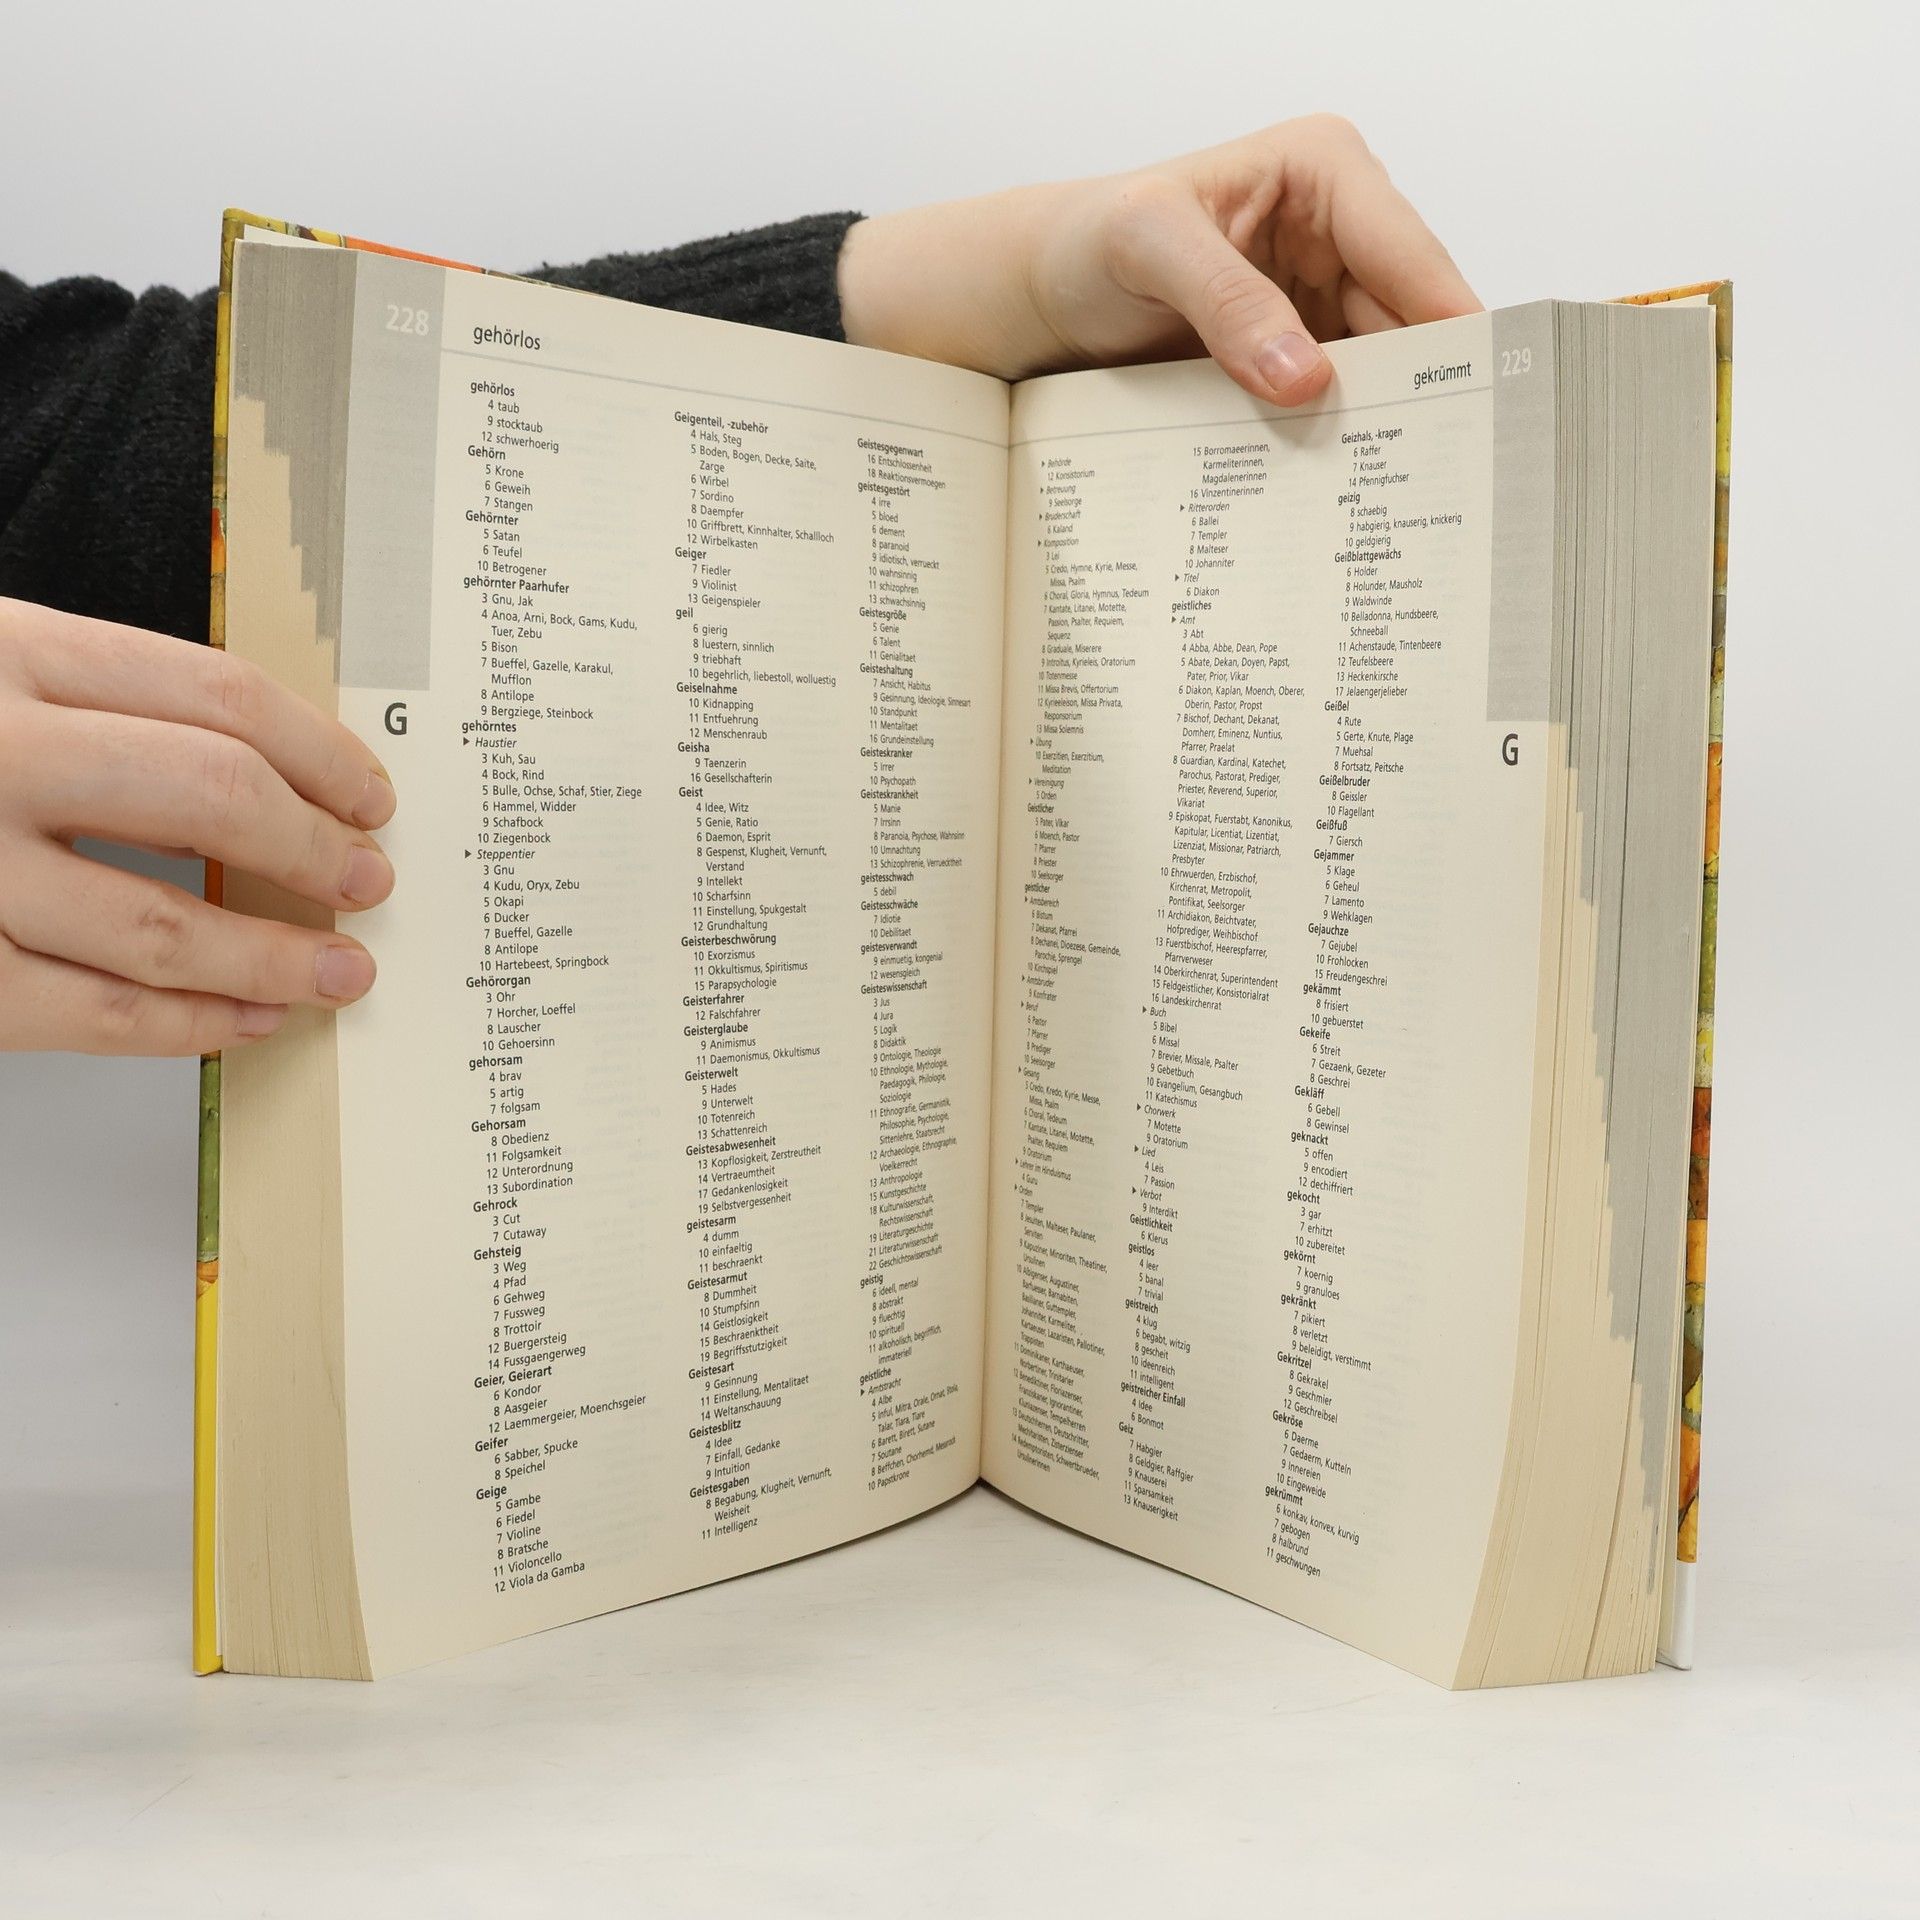 228
gehörlos
gehörlos
4 taub
9 stocktaub
12 schwerhoerig
Gehörn
5 Krone
6 Geweih
7 Stangen
Gehörnter
5 Satan
6 Teufel
10 Betrogener
gehörnter Paarhufer
3 Gnu, Jak
4 Anoa, Arni, Bock, Gams, Kudu,
Tuer, Zebu
5 Bison
7 Bueffel, Gazelle, Karakul,
Mufflon
8 Antilope
9 Bergziege, Steinbock
gehörntes
▸ Haustier
3 Kuh, Sau
4 Bock, Rind
5 Bulle, Ochse, Schaf, Stier, Ziege
6 Hammel, Widder
9 Schafbock
10 Ziegenbock
▸ Steppentier
3 Gnu
4 Kudu, Oryx, Zebu
5 Okapi
6 Ducker
7 Bueffel, Gazelle
8 Antilope
10 Hartebeest, Springbock
Gehörorgan
3 Ohr
7 Horcher, Loeffel
8 Lauscher
10 Gehoersinn
gehorsam
4 brav
5 artig
7 folgsam
Gehorsam
8 Obedienz
11 Folgsamkeit
12 Unterordnung
13 Subordination
Gehrock
3 Cut
7 Cutaway
Gehsteig
3 Weg
4 Pfad
6 Gehweg
7 Fussweg
8 Trottoir
12 Buergersteig
14 Fussgaengerweg
Geier, Geierart
6 Kondor
8 Aasgeier
12 Laemmergeier, Moenchsgeier
Geifer
6 Sabber, Spucke
8 Speichel
Geige
5 Gambe
6 Fiedel
7 Violine
8 Bratsche
11 Violoncello
12 Viola da Gamba
Geigenteil, -zubehör
4 Hals, Steg
5 Boden, Bogen, Decke, Saite,
Zarge
6 Wirbel
7 Sordino
8 Daempfer
10 Griffbrett, Kinnhalter, Schallloch
12 Wirbelkasten
Geiger
7 Fiedler
9 Violinist
13 Geigenspieler
geil
6 gierig
8 luestern, sinnlich
9 triebhaft
10 begehrlich, liebestoll, wolluestig
Geiselnahme
10 Kidnapping
11 Entfuehrung
12 Menschenraub
Geisha
9 Taenzerin
16 Gesellschafterin
Geist
4 Idee, Witz
5 Genie, Ratio
6 Daemon, Esprit
8 Gespenst, Klugheit, Vernunft,
Verstand
9 Intellekt
10 Scharfsinn
11 Einstellung, Spukgestalt
12 Grundhaltung
Geisterbeschwörung
10 Exorzismus
11 Okkultismus, Spiritismus
15 Parapsychologie
Geisterfahrer
12 Falschfahrer
Geisterglaube
9 Animismus
11 Daemonismus, Okkultismus
Geisterwelt
5 Hades
9 Unterwelt
10 Totenreich
13 Schattenreich
Geistesabwesenheit
13 Kopflosigkeit, Zerstreutheit
14 Vertraeumtheit
17 Gedankenlosigkeit
19 Selbstvergessenheit
geistesarm
4 dumm
10 einfaeltig
11 beschraenkt
Geistesarmut
8 Dummheit
10 Stumpfsinn
14 Geistlosigkeit
15 Beschraenktheit
19 Begriffsstutzigkeit
Geistesart
9 Gesinnung
11 Einstellung, Mentalitaet
14 Weltanschauung
Geistesblitz
4 Idee
7 Einfall, Gedanke
9 Intuition
Geistesgaben
8 Begabung, Klugheit, Vernunft,
Weisheit
11 Intelligenz
Geistesgegenwart
16 Entschlossenheit
18 Reaktionsvermoegen
geistesgestört
4 irre
5 bloed
6 dement
8 paranoid
9 idiotisch, verrueckt
10 wahnsinnig
11 schizophren
13 schwachsinnig
Geistesgröße
5 Genie
6 Talent
11 Genialitaet
Geisteshaltung
7 Ansicht, Habitus
9 Gesinnung, Ideologie, Sinnesart
10 Standpunkt
11 Mentalitaet
16 Grundeinstellung
Geisteskranker
5 Irrer
10 Psychopath
Geisteskrankheit
5 Manie
7 Irrsinn
8 Paranoia, Psychose, Wahnsinn
10 Umnachtung
13 Schizophrenie, Verruecktheit
geistesschwach
5 debil
Geistesschwäche
7 Idiotie
10 Debilitaet
geistesverwandt
9 einmuetig, kongenial
12 wesensgleich
Geisteswissenschaft
3 Jus
4 Jura
5 Logik
8 Didaktik
9 Ontologie, Theologie
10 Ethnologie, Mythologie,
Paedagogik, Philologie,
Soziologie
11 Ethnografie, Germanistik,
Philosophie, Psychologie,
Sittenlehre, Staatsrecht
12 Archaeologie, Ethnographie,
Voelkerrecht
13 Anthropologie
15 Kunstgeschichte
18 Kulturwissenschaft,
Rechtswissenschaft
19 Literaturgeschichte
21 Literaturwissenschaft
22 Geschichtswissenschaft
geistig
6 ideell, mental
8 abstrakt
9 fluechtig
10 spirituell
11 alkoholisch, begrifflich
immateriell
geistliche
▸ Amtstracht
4 Albe
5 Inful, Mitra, Orale, Ornat, Stola,
Talar, Tiara, Tiare
6 Barett, Birett, Sutane
7 Soutane
8 Beffchen, Chorhemd, Messrock
10 Papstkrone
G
229
gekrümmt
▸ Behörde
12 Konsistorium
▸ Betreuung
9 Seelsorge
▸ Bruderschaft
6 Kaland
▸ Komposition
3 Lei
5 Credo, Hymne, Kyrie, Messe,
Missa, Psalm
6 Choral, Gloria, Hymnus, Tedeum
7 Kantate, Litanei, Motette,
Passion, Psalter, Requiem,
Sequenz
8 Graduale, Miserere
9 Introitus, Kyrieleis, Oratorium
10 Totenmesse
11 Missa Brevis, Offertorium
12 Kyrieeleison, Missa Privata,
Responsorium
13 Missa Solemnis
▸ Übung
10 Exerzitien, Exerzitium,
Meditation
▸ Vereinigung
5 Orden
Geistlicher
5 Pater, Vikar
6 Moench, Pastor
7 Pfarrer
8 Priester
10 Seelsorger
geistlicher
▸ Amtsbereich
6 Bistum
7 Dekanat, Pfarrei
8 Dechanei, Dioezese, Gemeinde,
Parochie, Sprengel
10 Kirchspiel
▸ Amtsbruder
9 Konfrater
▸ Beruf
6 Pastor
7 Pfarrer
8 Prediger
10 Seelsorger
▸ Gesang
5 Credo, Kredo, Kyrie, Messe,
Missa, Psalm
6 Choral, Tedeum
7 Kantate, Litanei, Motette,
Psalter, Requiem
9 Oratorium
▸ Lehrer im Hinduismus
4 Guru
▸ Orden
7 Templer
8 Jesuiten, Malteser, Paulaner,
Serviten
9 Kapuziner, Minoriten, Theatiner,
Ursulinen
10 Albigenser, Augustiner,
Barfuesser, Barnabiten,
Basilianer, Guttempler,
Johanniter, Karmeliter,
Kartaeuser, Lazaristen, Pallotiner,
Trappisten
11 Dominikaner, Karthaeuser,
Norbertiner, Trinitarier
12 Benediktiner, Floriazenser,
Franziskaner, Ignorantiner,
Kluniazenser, Tempelherren
13 Deutschherren, Deutschritter,
Mechitaristen, Zisterzienser
14 Redemptoristen, Schwertbrueder,
Ursulinerinnen
15 Borromaeerinnen,
Karmeliterinnen,
Magdalenerinnen
16 Vinzentinerinnen
▸ Ritterorden
6 Ballei
7 Templer
8 Malteser
10 Johanniter
▸ Titel
6 Diakon
geistliches
▸ Amt
3 Abt
4 Abba, Abbe, Dean, Pope
5 Abate, Dekan, Doyen, Papst,
Pater, Prior, Vikar
6 Diakon, Kaplan, Moench, Oberer,
Oberin, Pastor, Propst
7 Bischof, Dechant, Dekanat,
Domherr, Eminenz, Nuntius,
Pfarrer, Praelat
8 Guardian, Kardinal, Katechet,
Parochus, Pastorat, Prediger,
Priester, Reverend, Superior,
Vikariat
9 Episkopat, Fuerstabt, Kanonikus,
Kapitular, Licentiat, Lizentiat,
Lizenziat, Missionar, Patriarch,
Presbyter
10 Ehrwuerden, Erzbischof,
Kirchenrat, Metropolit,
Pontifikat, Seelsorger
11 Archidiakon, Beichtvater,
Hofprediger, Weihbischof
13 Fuerstbischof, Heerespfarrer,
Pfarrverweser
14 Oberkirchenrat, Superintendent
15 Feldgeistlicher, Konsistorialrat
16 Landeskirchenrat
▸ Buch
5 Bibel
6 Missal
7 Brevier, Missale, Psalter
9 Gebetbuch
10 Evangelium, Gesangbuch
11 Katechismus
▸ Chorwerk
7 Motette
9 Oratorium
▸ Lied
4 Leis
7 Passion
▸ Verbot
9 Interdikt
Geistlichkeit
6 Klerus
geistlos
4 leer
5 banal
7 trivial
geistreich
4 klug
6 begabt, witzig
8 gescheit
10 ideenreich
11 intelligent
geistreicher Einfall
4 Idee
6 Bonmot
Geiz
7 Habgier
8 Geldgier, Raffgier
9 Knauserei
11 Sparsamkeit
13 Knauserigkeit
Geizhals, -kragen
6 Raffer
7 Knauser
14 Pfennigfuchser
geizig
8 schaebig
9 habgierig, knauserig, knickerig
10 geldgierig
Geißblattgewächs
6 Holder
8 Holunder, Mausholz
9 Waldwinde
10 Belladonna, Hundsbeere,
Schneeball
11 Achenstaude, Tintenbeere
12 Teufelsbeere
13 Heckenkirsche
17 Jelaengerjelieber
Geißel
4 Rute
5 Gerte, Knute, Plage
7 Muehsal
8 Fortsatz, Peitsche
Geißelbruder
8 Geissler
10 Flagellant
Geißfuß
7 Giersch
Gejammer
5 Klage
6 Geheul
7 Lamento
9 Wehklagen
Gejauchze
7 Gejubel
10 Frohlocken
15 Freudengeschrei
gekämmt
8 frisiert
10 gebuerstet
Gekeife
6 Streit
7 Gezaenk, Gezeter
8 Geschrei
Gekläff
6 Gebell
8 Gewinsel
geknackt
5 offen
9 encodiert
12 dechiffriert
gekocht
3 gar
7 erhitzt
10 zubereitet
gekörnt
7 koernig
9 granuloes
gekränkt
7 pikiert
8 verletzt
9 beleidigt, verstimmt
Gekritzel
8 Gekrakel
9 Geschmier
12 Geschreibsel
Gekröse
6 Daerme
7 Gedaerm, Kutteln
9 Innereien
10 Eingeweide
gekrümmt
6 konkav, konvex, kurvig
7 gebogen
8 halbrund
11 geschwungen
G